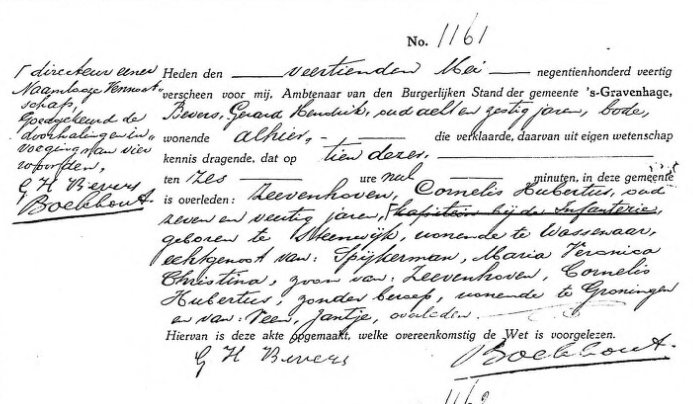 No. 1161
Heden den veertienden Mei negentienhonderd veertig
verscheen voor mij, Ambtenaar van den Burgerlijken Stand der gemeente 's-Gravenhage,
Bevers, Gerard Hendrik, oud acht en zestig jaren, bode,
wonende alhier, die verklaarde, daarvan uit eigen wetenschap
kennis dragende, dat op tien dezer,
ten zes ure nul minuten, in deze gemeente
is overleden: Zeevenhoven, Cornelis Hubertus, oud
zeven en veertig jaren, Γ kapitein bij de Infanterie,
geboren te Steenwijk, wonende te Wassenaar,
echtgenoot van: Spijkerman, Maria Veronica
Christina, zoon van: Zeevenhoven, Cornelis
Hubertus, zonder beroep, wonende te Groningen
en van: Veen, Jantje, overleden.
Hiervan is deze akte opgemaakt, welke overeenkomstig de Wet is voorgelezen.
G H Bevers
Boekhout.
Γ directeur eener
Naamlooze Vennoot-
schap,
Goedgekeurd de
doorhaling en in-
voeging van vier
woorden,
G H Bevers
Boekhout.
1162